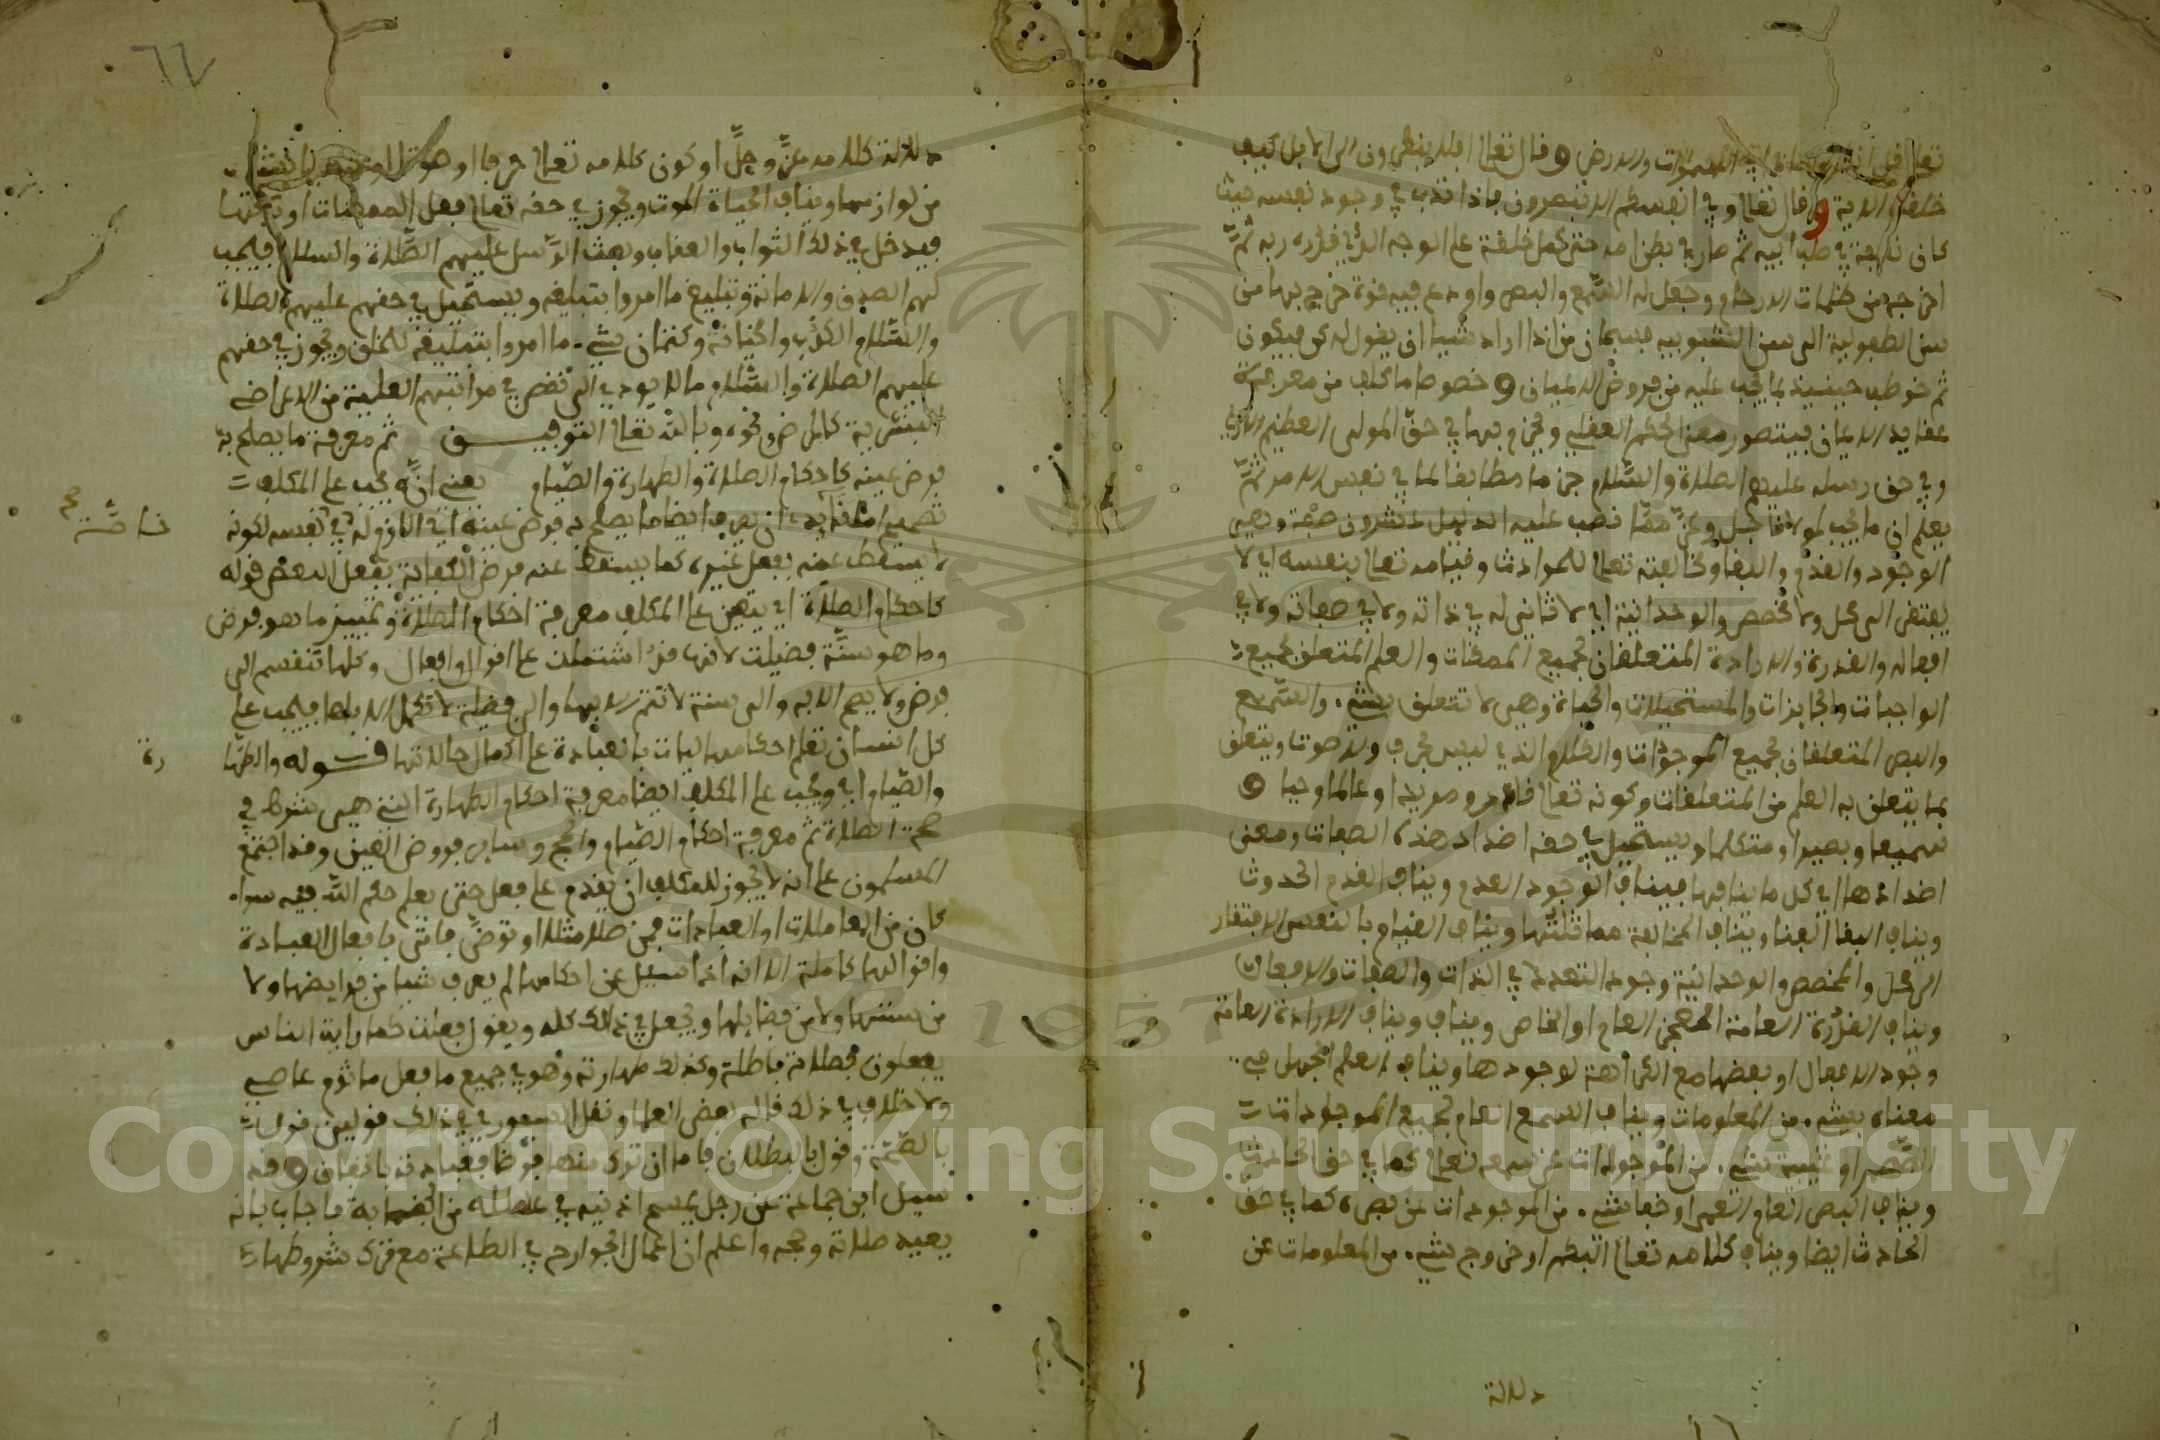 تعالى قل انظروا ماذا في السموات والارض وقال تعالى افلا ينظرون الى الابل كيف
خلقت الاية وقال تعالى وفي انفسكم افلا تبصرون فاذا تدبر في وجود نفسه حيث
كان نطفة في صلب ابيه ثم صار في بطن امه حتى كمل خلقته على الوجه الذي قدره ربه ثم
اخرجه من ظلمات الارحام وجعل له السمع والبصر واودع فيه قوة خرج بها من
سن الطفولية الى سن الشبوبية فسبحان من اذا اراد شيئا ان يقول له كن فيكون
ثم خوطب حينيذ بما يجب عليه من فروض الاعيان وخصوصا ما كلف من معرفة
عقايد الايمان فيتصور معنى الحكم العقلي ويجزم بها في حق المولى العظيم الباري
وفي حق رسله عليهم الصلاة والسلام جزما مطابقا لما في نفس الامر ثم
يعلم ان ما يجب لمولانا جل وعز مما نصب عليه الدليل عشرون صفة وهي
الوجود والقدم والبقا ومخالفته تعالى للحوادث وقيامه تعالى بنفسه اي لا
يفتقر الى محل ولا مخصص والوحدانية اي لا ثاني له في ذاته ولا في صفاته ولا في
افعاله والقدرة والارادة المتعلقان بجميع الممكنات والعلم المتعلق بجميع
الواجبات والجايزات والمستحيلات والحياة وهي لا تتعلق بشيء والسمع
والبصر المتعلقان بجميع الموجودات والكلام الذي ليس بحرف ولا صوت ويتعلق
بما يتعلق به العلم من المتعلقات وكونه تعالى قادرا ومريدا وعالما وحيا و
سميعا وبصيرا ومتكلما ويستحيل في حقه اضداد هذه الصفات ومعنى
اضدادها اي كل ما ينافيها فينافي الوجود العدم وينافي القدم الحدوث
وينافي البقا الفنا وينافي المخالفة مماثلتها وينافي القيام بالنفس الافتقار
الى محل والمخصص والوحدانية وجود التعدد في الذات والصفات والافعال
وينافي القدرة العامة العجز العام او الخاص وينافي وينافي الارادة العامة
وجود الافعال او بعضها مع الكراهة لوجودها وينافي العلم الجهل وما في
معناه بشيء من المعلومات وينافي السمع العام لجميع الموجودات
الصمم او غيبة شيء من الموجودات عن سمعه تعالى كما في حق الحادث
وينافي البصر العام العمى او خفا شيء من الموجودات عن بصره كما في حق
الحادث ايضا وينافي كلامه تعالى البكم او خروج شيء من المعلومات عن
دلالة
٦٢
دلالة كلامه عز وجل او كون كلامه تعالى حرفا او صوتا او
من لوازمها وينافي الحياة الموت ويجوز في حقه تعالى فعل الممكنات او تركها
فيدخل في ذلك الثواب والعقاب وبعث الرسل عليهم الصلاة والسلام فيجب
لهم الصدق والامانة وتبليغ ما امروا بتبليغه ويستحيل في حقهم عليهم الصلاة
والسلام الكذب والخيانة وكتمان شيء ما امروا بتبليغه للخلق ويجوز في حقهم
عليهم الصلاة والسلام ما لا يودي الى نقص في مراتبهم العلية من الاعراض
البشرية كالمرض ونحوه وبالله تعالى التوفيق ثم معرفة ما يصلح به
فرض عينه كاحكام الصلاة والطهارة والصيام يعني انه يجب على المكلف
تصحيح عقايده ان يعرف ايضا ما يصلح به فرض عينه اي اللازم له في نفسه لكونه
خاصة صح
لا يسقط عنه بفعل غيره كما يسقط عنه فرض الكفاية بفعل البعض قوله
كاحكام الصلاة اي يتعين على المكلف معرفة احكام الصلاة وتمييز ما هو فرض
وما هو سنة فضيلت لانها قد اشتملت على اقوال وافعال وكلها تنقسم الى
فرض ولا يصح الا به والى سنة لا تتم الا بها والى فضيلة لا تكمل الا بها فيجب على
كل انسان تعلم احكامها ليات بالعبادة على اكمل حالاتها قوله والطها
رة
والصيام اي ويجب على المكلف ايضا معرفة احكام الطهارة التي هي شرط في
صحة الصلاة ثم معرفة احكام الصيام والحج وساير فروض العين وقد اجتمع
المسلمون على انه لا يجوز للمكلف ان يقدم على فعل حتى يعلم حكم الله فيه سواء
كان من المعاملات او العبادات فمن صلى مثلا او توضى فاتى بافعال العبادة
واقوالها كاملة الا انه اذا سيل عن احكامها لم يعرف شيئا من فرايضها ولا
من سننها ولا من فضايلها ويجعل في ذلك كله ويقول فعلت كما رايت الناس
يفعلون فصلاته باطلة وكذلك طهارته وهو في جميع ما فعل ماثوم عاصي
ولا خلاف في ذلك قاله بعض العلما ونقل في ذلك قولين قول
بالصحة وقول بالبطلان فاما ان ترك منها فرضا فعبادته باتفاق وقد
سيل ابن جماعة عن رجل يمسح اذنيه في غسله من الجنابة فاجاب بانه
يعيد صلاته وحجه واعلم ان اعمال الجوارح في الطاعة مع ترك شروطها
Copyright © King Saud University
1957